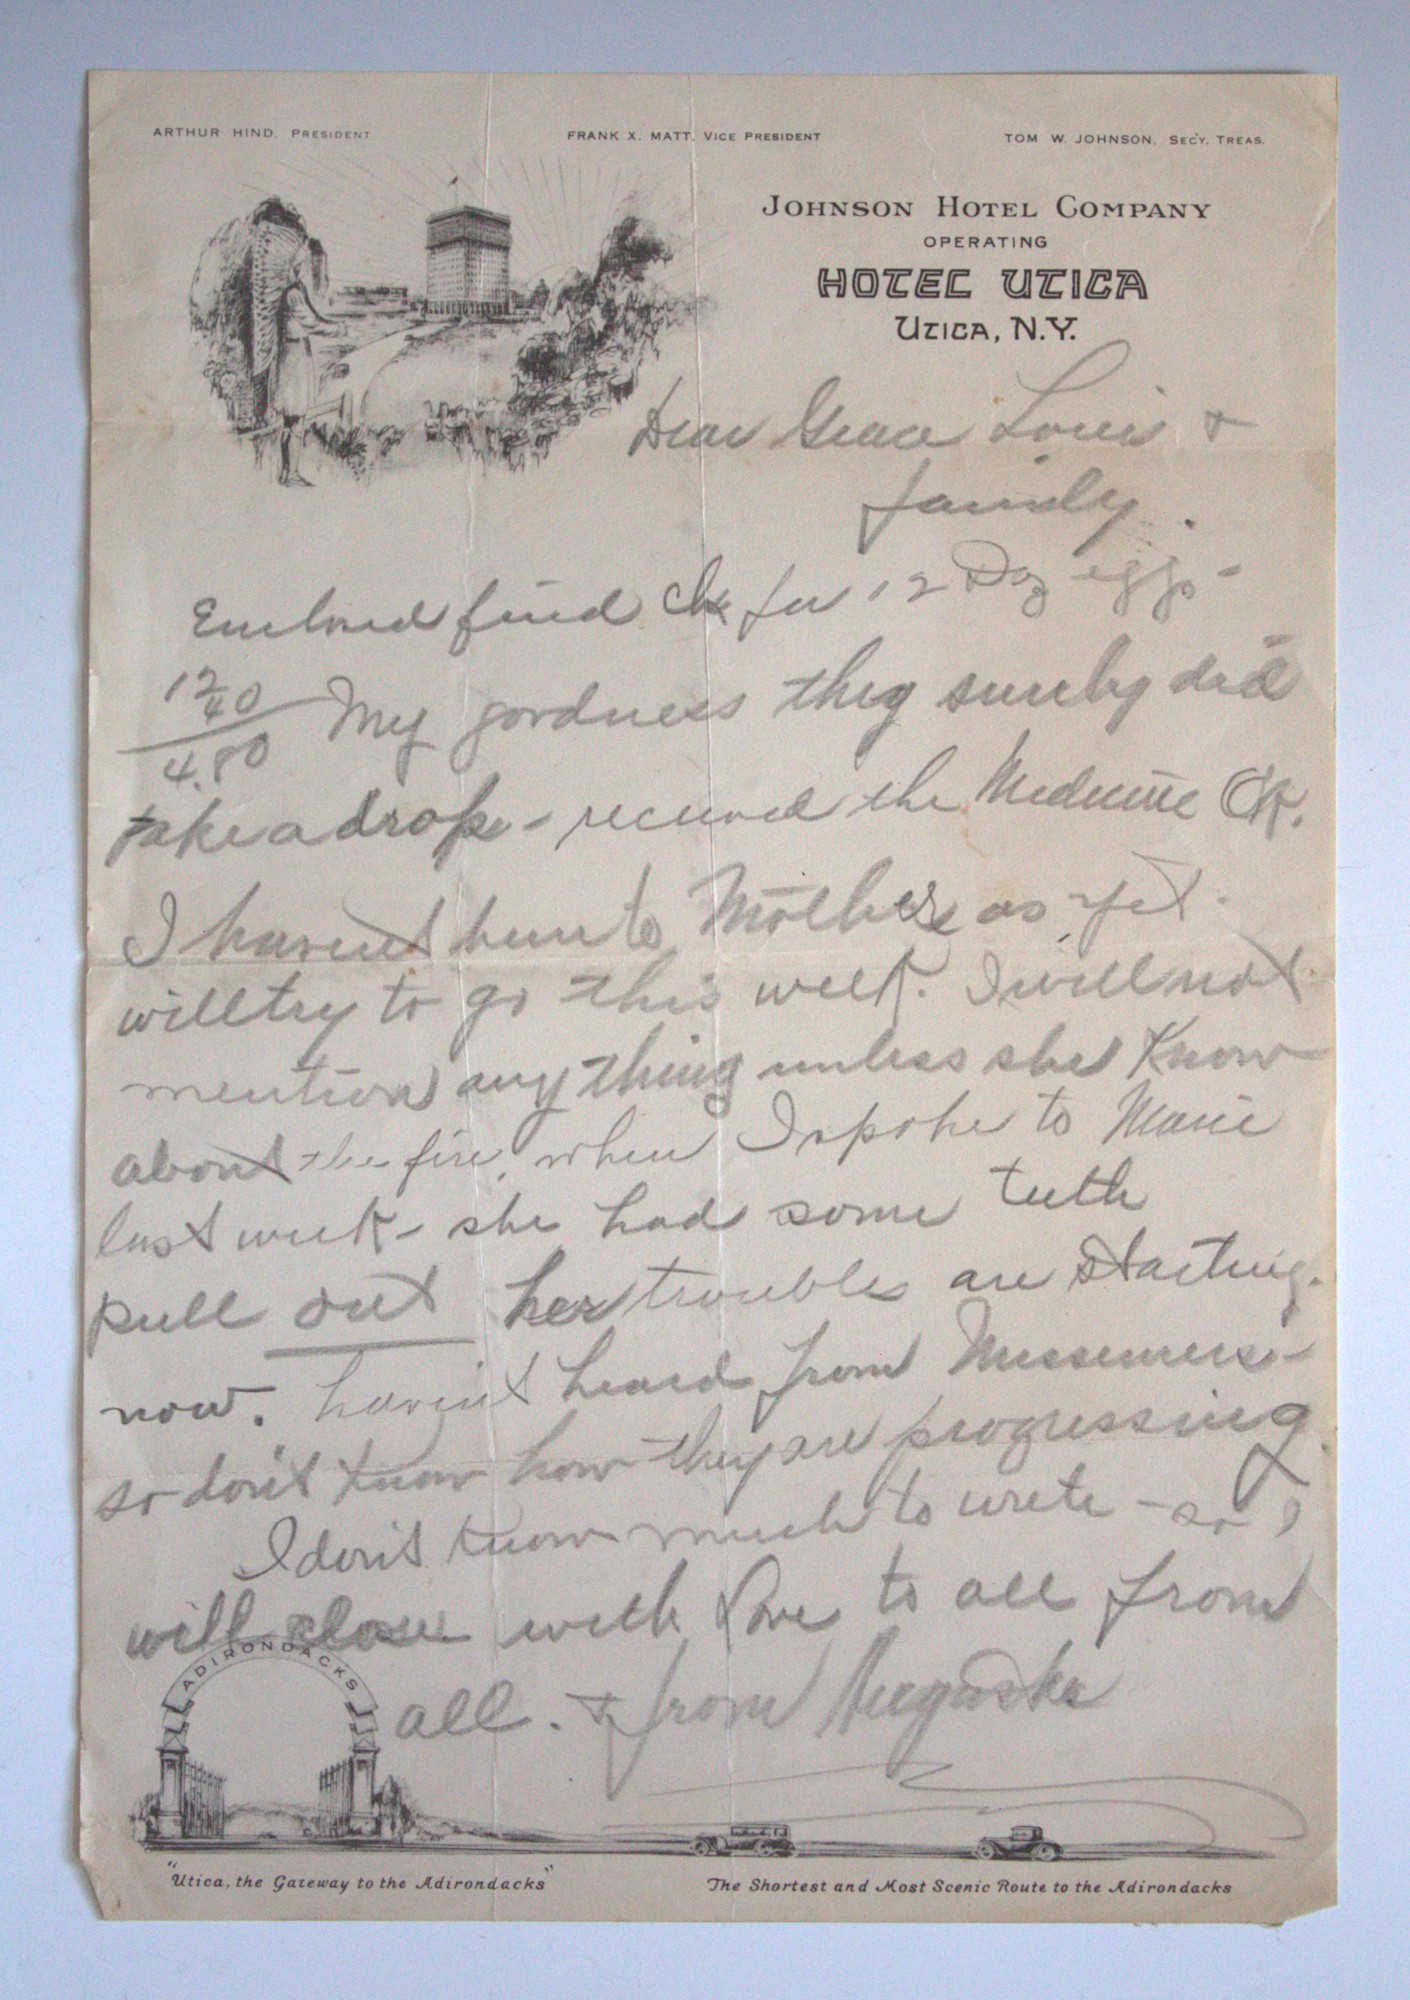 ARTHUR HIND, PRESIDENT
FRANK X. MATT, VICE PRESIDENT
TOM W. JOHNSON, SEC'Y. TREAS.
JOHNSON HOTEL COMPANY
OPERATING
HOTEL UTICA
UTICA, N.Y.
Dear Grace Louis &
family.
Enclosed find ck for 12 Doz eggs -
12
40
4.80
My goodness they surely did
take a drop - received the Medicine OK.
I haven't been to Mothers as yet.
will try to go this week. I will not
mention any thing unless she know
about the fire, when I spoke to Marie
last week - she had some teeth
pull out her troubles are starting.
now. haven't heard from Messemers -
so don't know how they are progressing.
I don't know much to write - so I
will close with love to all from
all. & from Augusta
ADIRONDACKS
"Utica, the Gateway to the Adirondacks"
The Shortest and Most Scenic Route to the Adirondacks